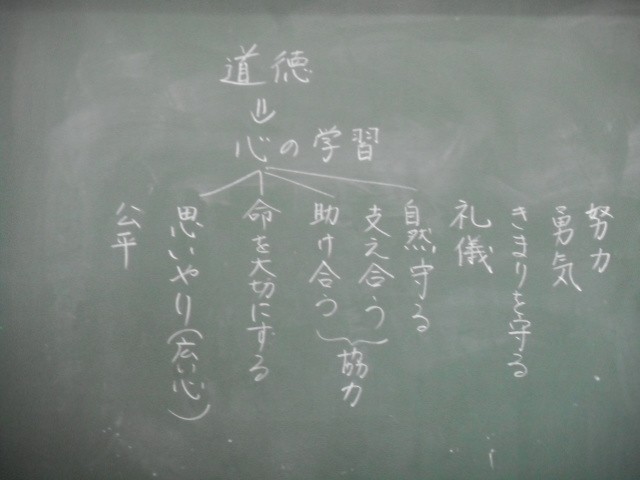 道徳
⇓
心の学習
努力
勇気
きまりを守る
礼儀
自然守る
支え合う
助け合う
協力
命を大切にする
思いやり(広い心)
公平